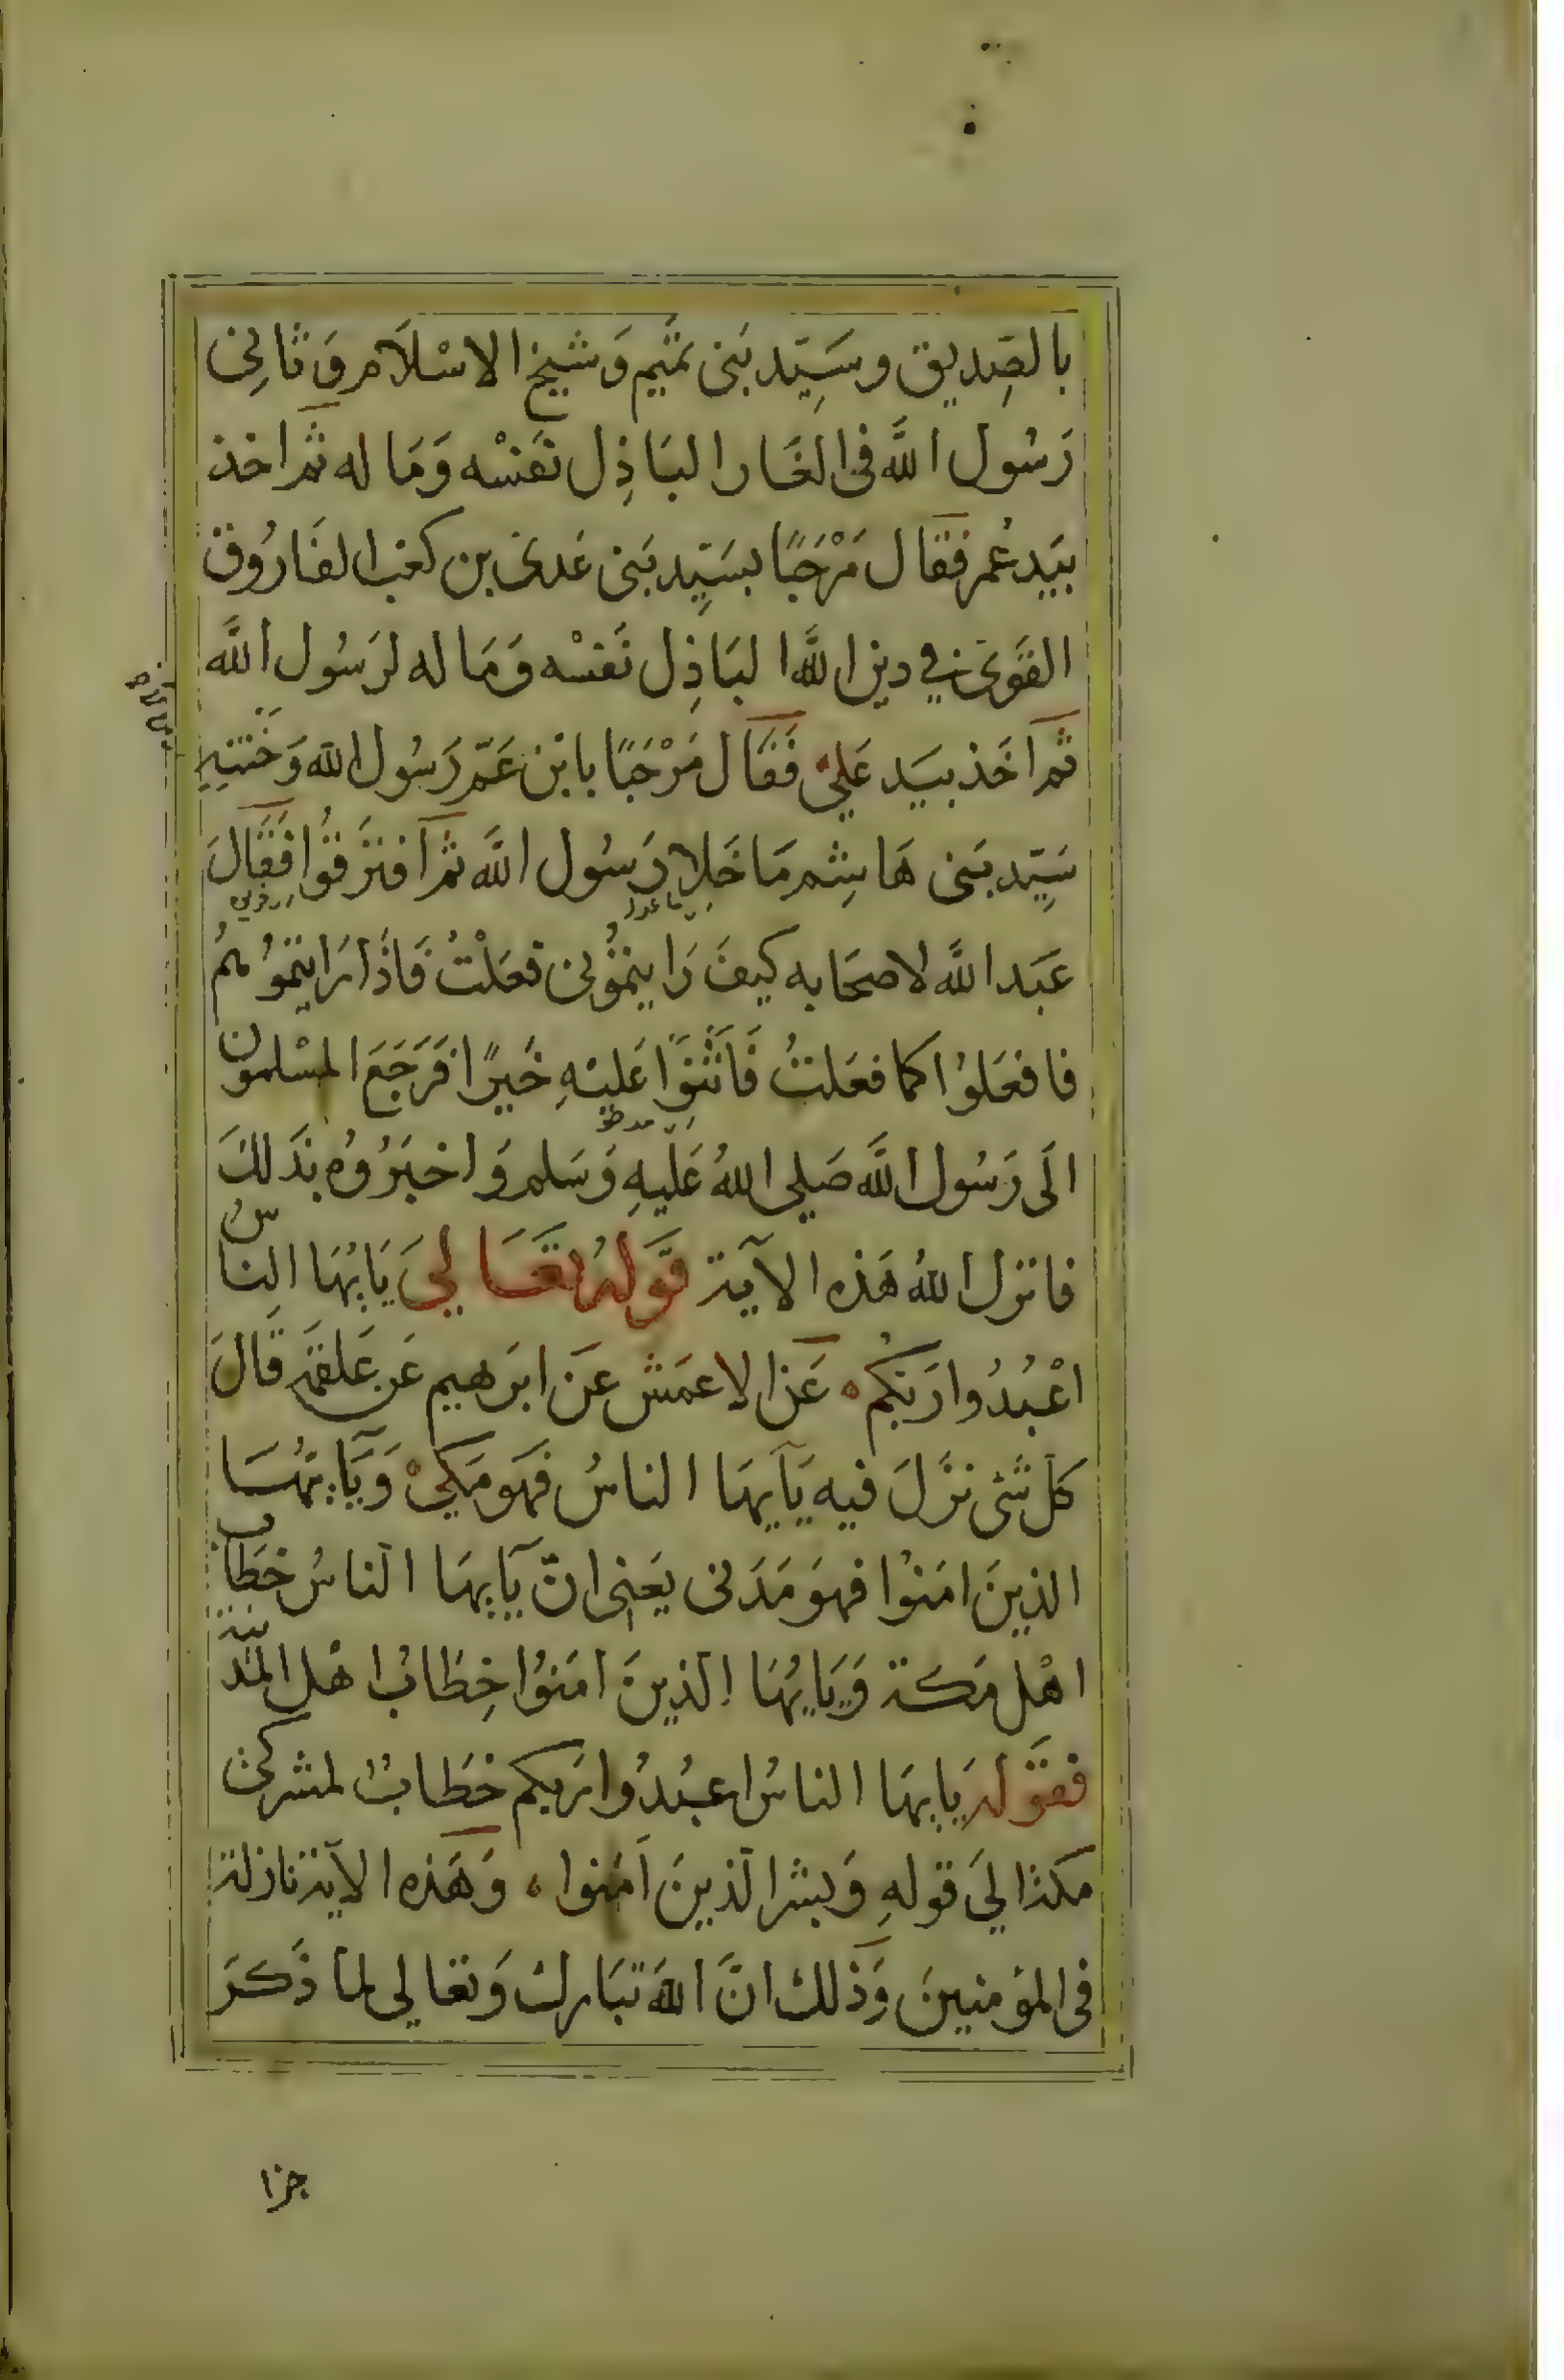 بالصِّديق وسَيِّد بَنى تَميم وَشيخ الاسْلام وَثانِى
رَسُول اللَّه فى الغَار الباذِل نَفسْه وَمَا له ثم اخذ
بيَد عُمر فقال مَرْحَبًا بسَيِّد بَنى عَدى بن كعب الفَارُوق
القَوى في دين اللَّه البَاذِل نَفسْه وَمَا له لرَسُول اللَّه
ثم اخَذ بيَد عَلىٍ فَقَال مَرْحَبًا بابْن عَمّ رَسُول الله وَخَتنِهِ
سَيِّد بَنى هَاشِم مَا خَلا رَسُول اللَّه ثم افترَقُوا فَقَالَ
عَبَد اللَّه لاصحَابه كيفَ رَايتمُونى فعَلْتُ فَاذَا رَايتمُوُهُمُ
فافعَلوُا كما فعَلتُ فَاَثنَوَا عَليْهِ خَيرًا فَرَجَعَ المسْلمون
الَى رَسُول اللَّه صَلى اللهُ عَلَيهِ وَسَلم وَاخبَرُوُه بذَلكَ
فانزل اللهُ هَذه الآية قَولهُ تعَالىَ يَايُهَا النَاسُ
اعْبُدُوا رَبَكُم عَن الاعمَش عَن ابرَهيم عَن عَلقمَة قَالَ
كل شَىْ نزَلَ فيه يَآيهَا الناسُ فَهَو مَكىْ وَيَآايُهَا
الذينَ امَنوُا فهوَ مَدَنى يَعنى انّ يَآيهَا الناسُ خطَاب
اهْل مَكة وَيَايُهَا الذينَ امَنوُا خِطَابُ اهْل المَدَينة
فقَولهُ يَايهَا الناسُ اعبُدُوا رَبكم خطَابُ لمشركى
مكة الىَ قولهِ وَبشر الذينَ اَمَنوا وَهَذه الاية نازلة
فى المؤمنينَ وَذلك انَّ اللهَ تبَارك وَتعَالى لما ذَكرَ